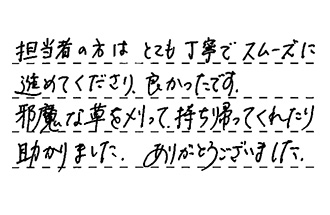 担当者の方は とても丁寧でスムーズに
進めてくださり、良かったです。
邪魔な草を刈って、持ち帰ってくれたり
助かりました。 ありがとうございました。